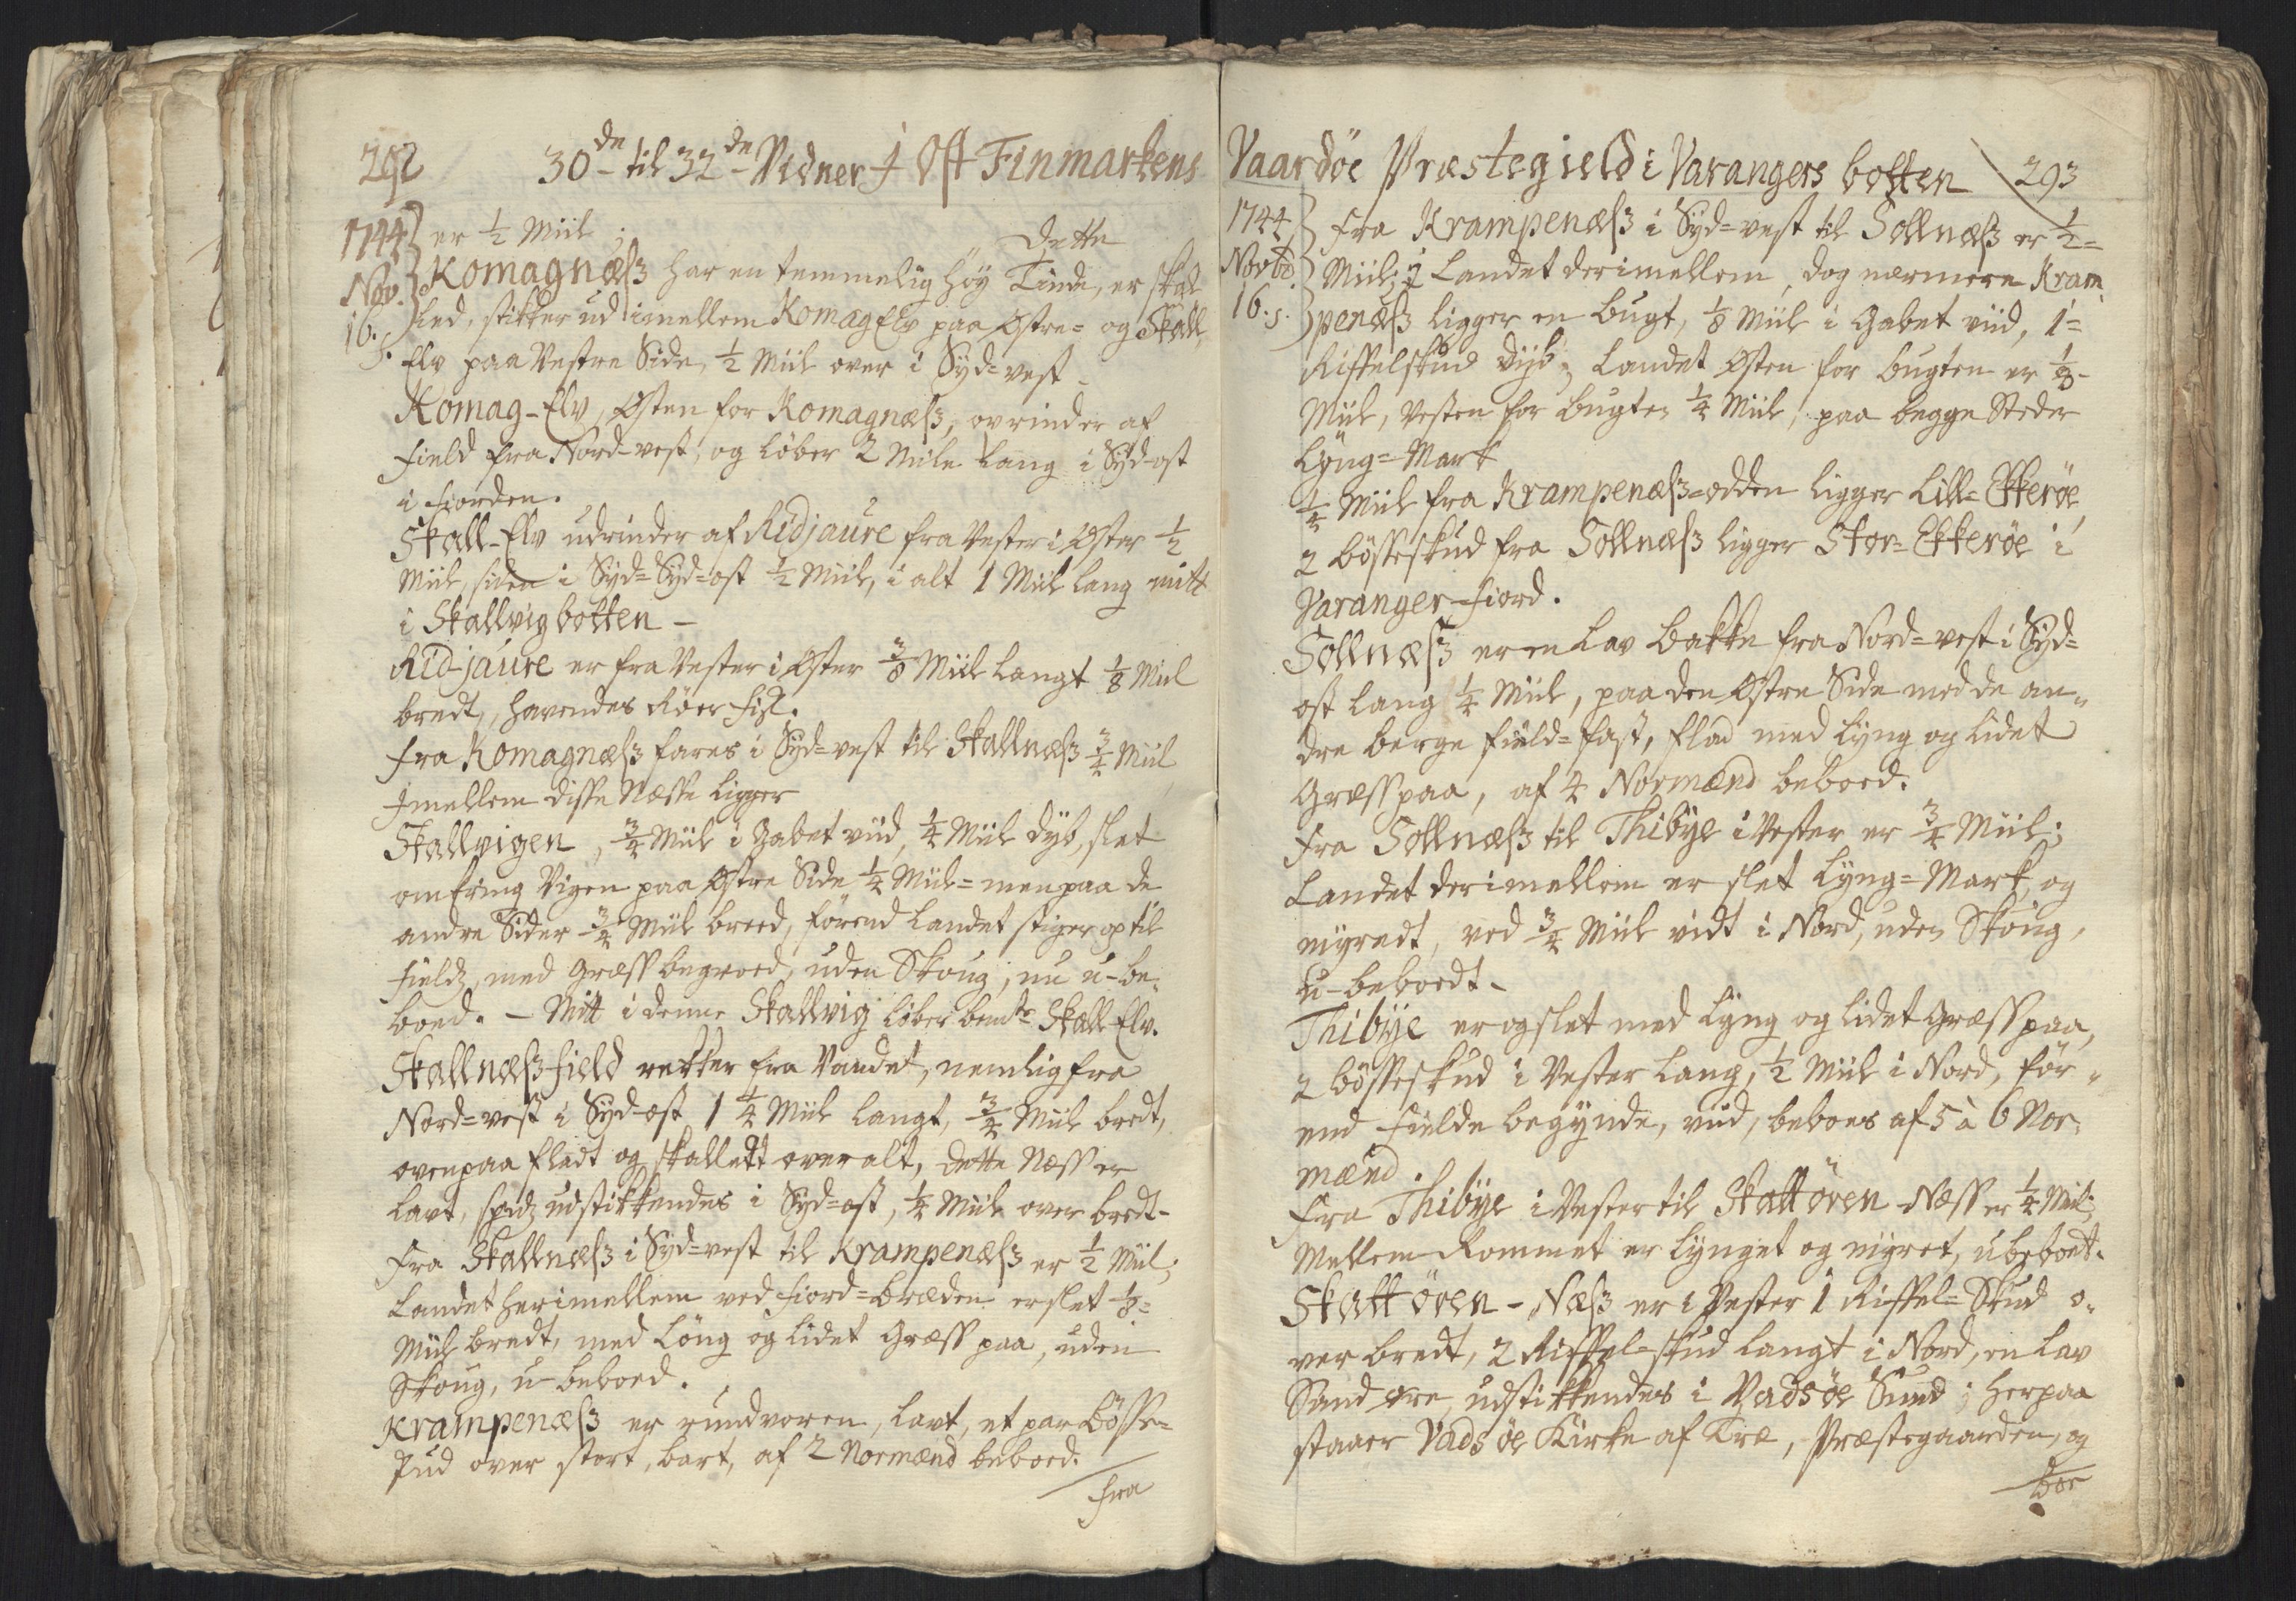 292 30de til 32de Vidner i Ost Finmarkens
1744 er 1/2 Miil;
Nov. Komagnæss har en temmelig höy Tinde, Dette er skal
16. s. led, stikker ud imellem Komag Elv paa Ostre= og Skall
Elv paa Vestre Side, 1/2 Miil over i Syd=vest.
Komag-Elv, Osten for Komagnæss, oprinder af
Field fra Nord-vest, og löber 2 Mile lang i Syd-ost
i Fiorden.
Skall-Elv udrinder af Ridjaure fra Vester i Oster 1/2
Miil, siden i Syd=Syd=ost 1/2 Miil, i alt 1 Miil lang mitt
i Skallvigbotten -
Rid-jaure er fra Vester i Oster 3/8 Miil langt 1/8 Miil
bredt, havendes Röer Fisk.
Fra Komagnæss fares i Syd=vest til Skallnæss 3/4 Miil
Imellem disse Næsse ligger
Skallvigen, 3/4 Miil i Gabet viid, 1/4 Miil dyb, slet
omkring Vigen paa Ostre Side 1/4 Miil= men paa de
andre Sider 3/4 Miil breed, förend Landet stiger op til
Field, med Græss begroed, uden Skoug, nu u-be-
boed. - Mitt i denne Skallvig löber bemte Skall Elv.
Skallnæss-field rekker fra Vandet, nemlig fra
Nord=vest i Syd-ost 1 1/4 Miil langt, 3/4 Miil bredt,
ovenpaa fladt og skallett over alt, dette Næss er
lavt, spidz udstikkendes i Syd=ost, 1/4 Miil over bredt-
Fra Skallnæss i Syd=vest til Krampenæss er 1/2 Miil;
Landet herimellem ved Fiord=bredden er slet 1/8=
Miil bredt, med Löng og lidet Græss paa, uden
Skoug, u-beboed.
Krampenæss er rundvoren, lavt, et par Bösse=
skud over stort, bart, af 2 Normænd beboed.
Fra
Vaardöe Præstegield i Varangers botten 293
1744 Fra Krampenæss i Syd=vest til Sollnæss er 1/2=
Novbr. Miil; i Landet derimellem, dog nærmere Kram
16. s. penæss ligger en Bugt, 1/8 Miil i Gabet viid, 1=
Riffelskud dyb; Landet Osten for Bugten er 1/8-
Miil, Vesten for Bugten 1/4 Miil, paa begge Steder
Lyng=Mark
1/4 Miil fra Krampenæss=odden ligger Lill=Ekkeröe,
2 Bösseskud fra Sollnæss ligger Stor=Ekkeröe i
Varanger-Fiord.
Sollnæss er en lav Bakke fra Nord=vest i Syd=
ost lang 1/4 Miil, paa den Ostre Side med de an-
dre Berge field=fast, flad med Lyng og lidet
Græss paa, af 4 Normænd beboed.
Fra Sollnæss til Thibye i Vester er 3/4 Miil;
Landet derimellem er slet Lyng=Mark, og
myredt, ved 3/4 Miil vidt i Nord, uden Skoug,
u-beboedt-
Thibye er og slet med Lyng og lidet Græss paa,
2 bösseskud i Vester lang, 1/2 Miil i Nord, för-
end Fielde begynde, viid, beboes af 5 à 6 Nor-
mænd.
Fra Thibye i Vester til Skattören-Næss er 1/4 Miil;
Mellem Rommet er lynget og myret, ubeboet.
Skattören-Næss er i Vester 1 Riffel=Skud o-
ver bredt, 2 Riffel=skud langt i Nord, en lav
Sand öre, udstikkendes i Vadsöe Sund; herpaa
staaer Vadsöe Kirke af Træ, Præstegaarden, og
boe